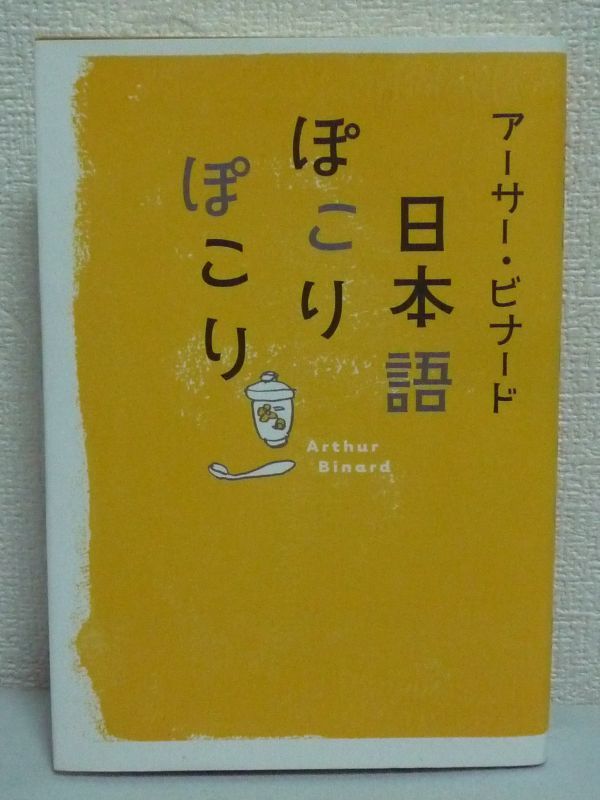 アーサー・ビナード
日本語
ぽこり
ぽこり
Arthur
Binard